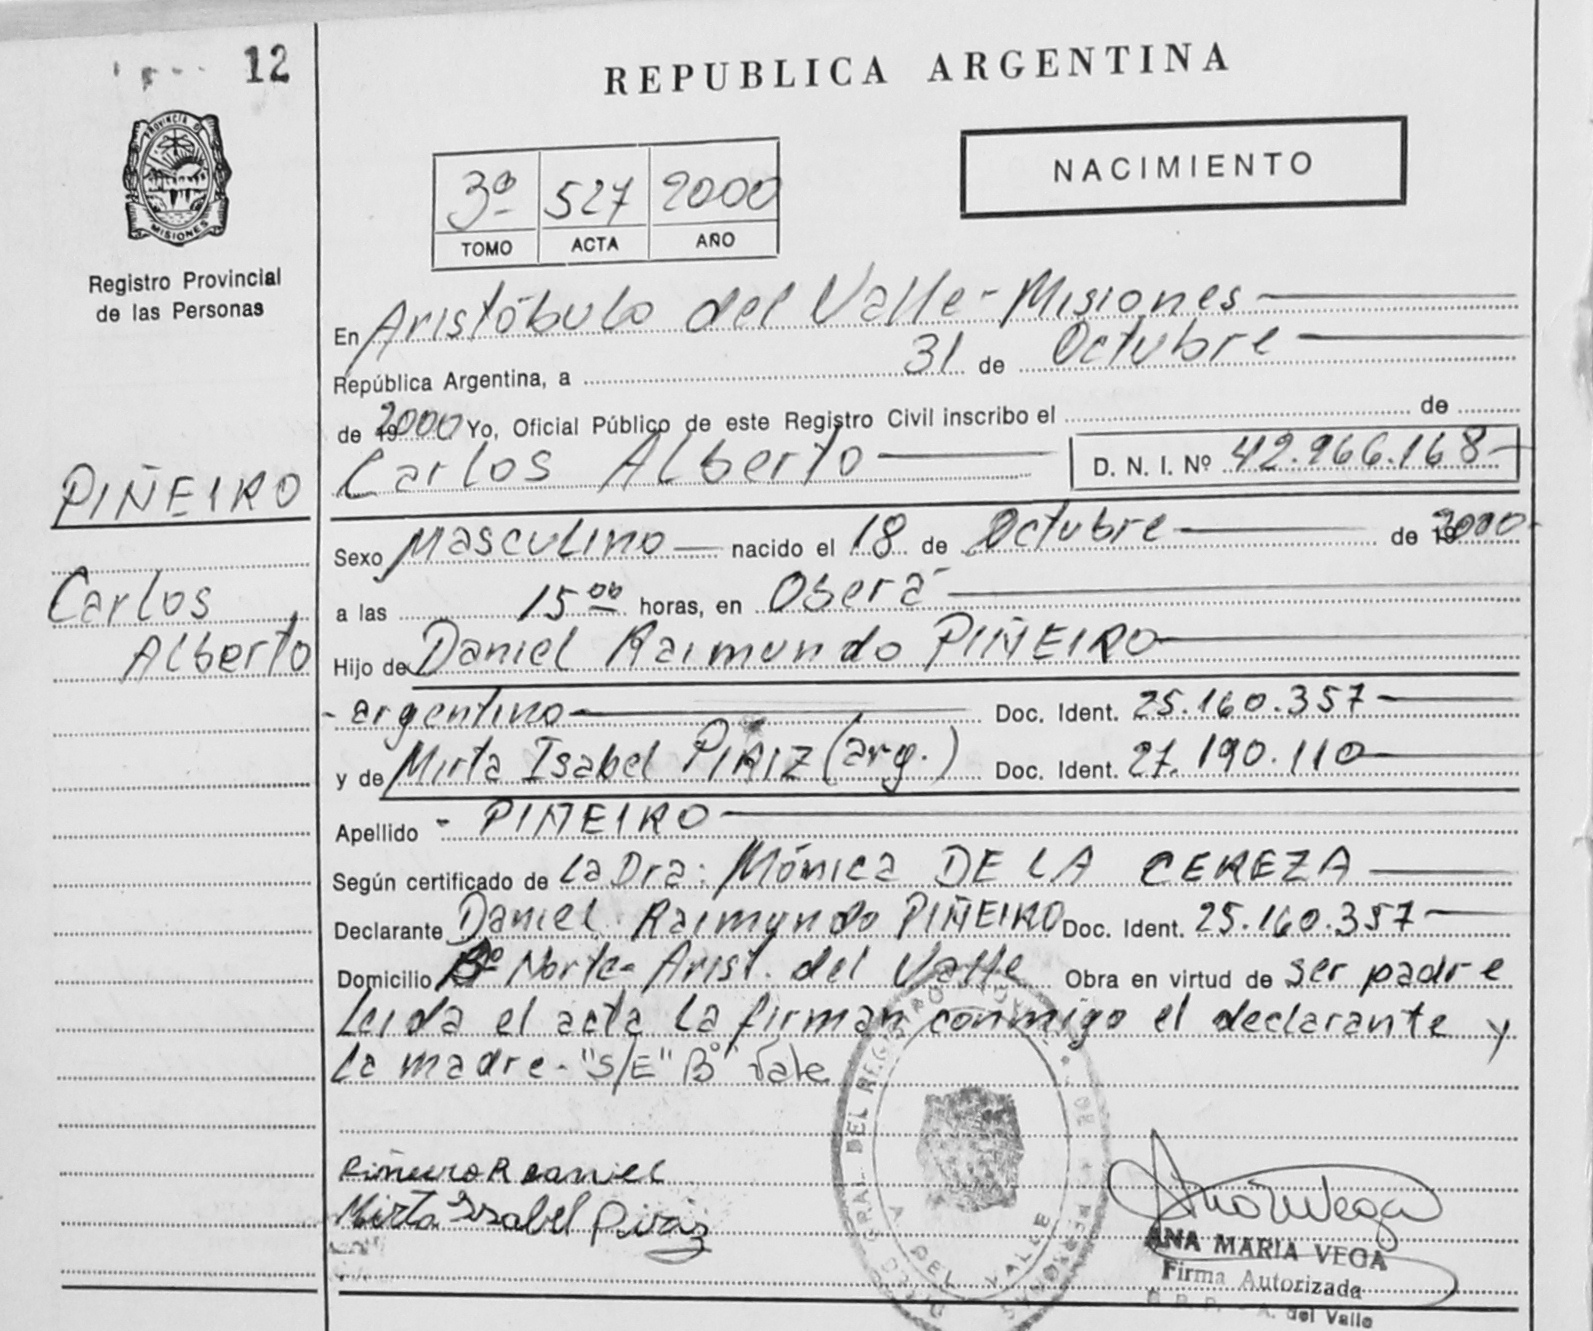 12
REPUBLICA ARGENTINA
PROVINCIA D
MISIONES
Registro Provincial
de las Personas
3º 527 2000
TOMO ACTA AÑO
NACIMIENTO
En Aristóbulo del Valle - Misiones
República Argentina, a 31 de Octubre
de 2000 Yo, Oficial Público de este Registro Civil inscribo el de
Carlos Alberto D. N. I. Nº 42.966.168
PIÑEIRO
Carlos
Alberto
Sexo Masculino nacido el 18 de Octubre de 2000
a las 15 00 horas, en Oberá
Hijo de Daniel Raimundo PIÑEIRO
- argentino Doc. Ident. 25.160.357
y de Mirta Isabel (arg.) Doc. Ident. 27.190.110
Apellido - PIÑEIRO
Según certificado de La Dra: Mónica DE LA CEREZA
Declarante Daniel Raimundo PIÑEIRO Doc. Ident. 25.160.357
Domicilio Bº Norte - Arist. del Valle Obra en virtud de ser padre
Leida el acta la firman conmigo el declarante y
la madre - "S/E" Bº Vale
Piñeiro R Daniel
Mirta Isabel
GRAL DEL REGISTRO
DEL VALLE
ANA MARIA VEGA
Firma Autorizada
A. del Valle